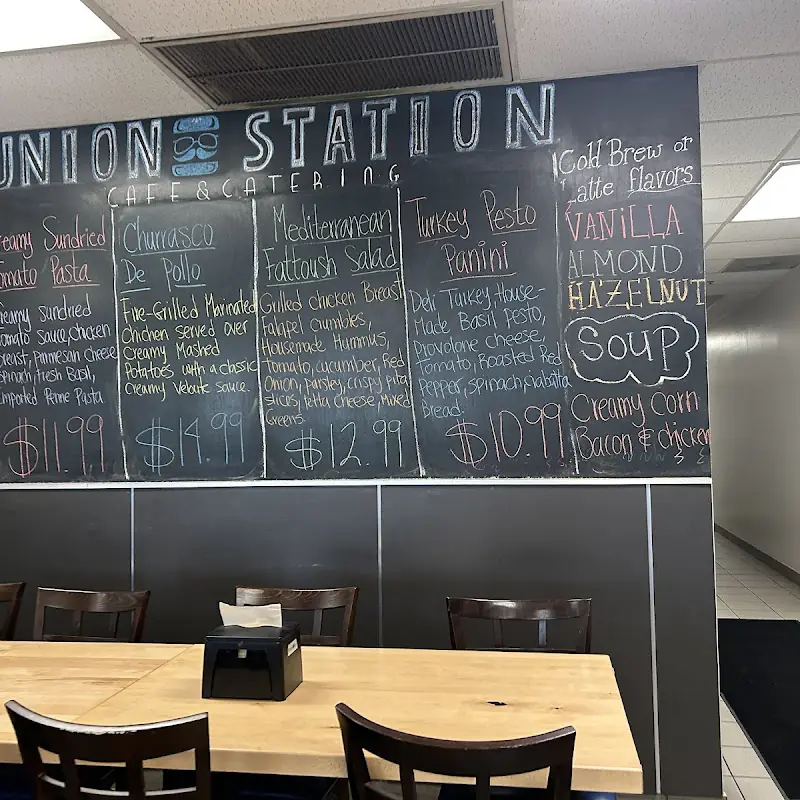 UNION STATION
CAFE & CATERING
reamy Sundried
omato Pasta
reamy sundried
omato sauce, chicken
reast, Parmesan cheese
spinach, Fresh Basil,
imported Penne Pasta
$11.99
Churrasco
De Pollo
Fire-Grilled Marinated
Chichen served over
Creamy Mashed
Potatoes with a classic
Creamy Velouté sauce.
$14.99
Mediterranean
Fattoush Salad
Grilled chicken Breast
falafel crumbles,
Housemade Hummus,
Tomato, cucumber, Red
Onion, parsley, crispy pita
slices, fetta cheese, Mixed
Greens.
$12.99
Turkey Pesto
Panini
Deli Turkey, House-
Made Basil Pesto,
Provolone cheese,
Tomato, Roasted Red
Pepper, spinach, ciabatta
Bread.
$10.99
Cold Brew or
Latte flavors
VANILLA
ALMOND
HAZELNUT
Soup
Creamy Corn
Bacon & chicken